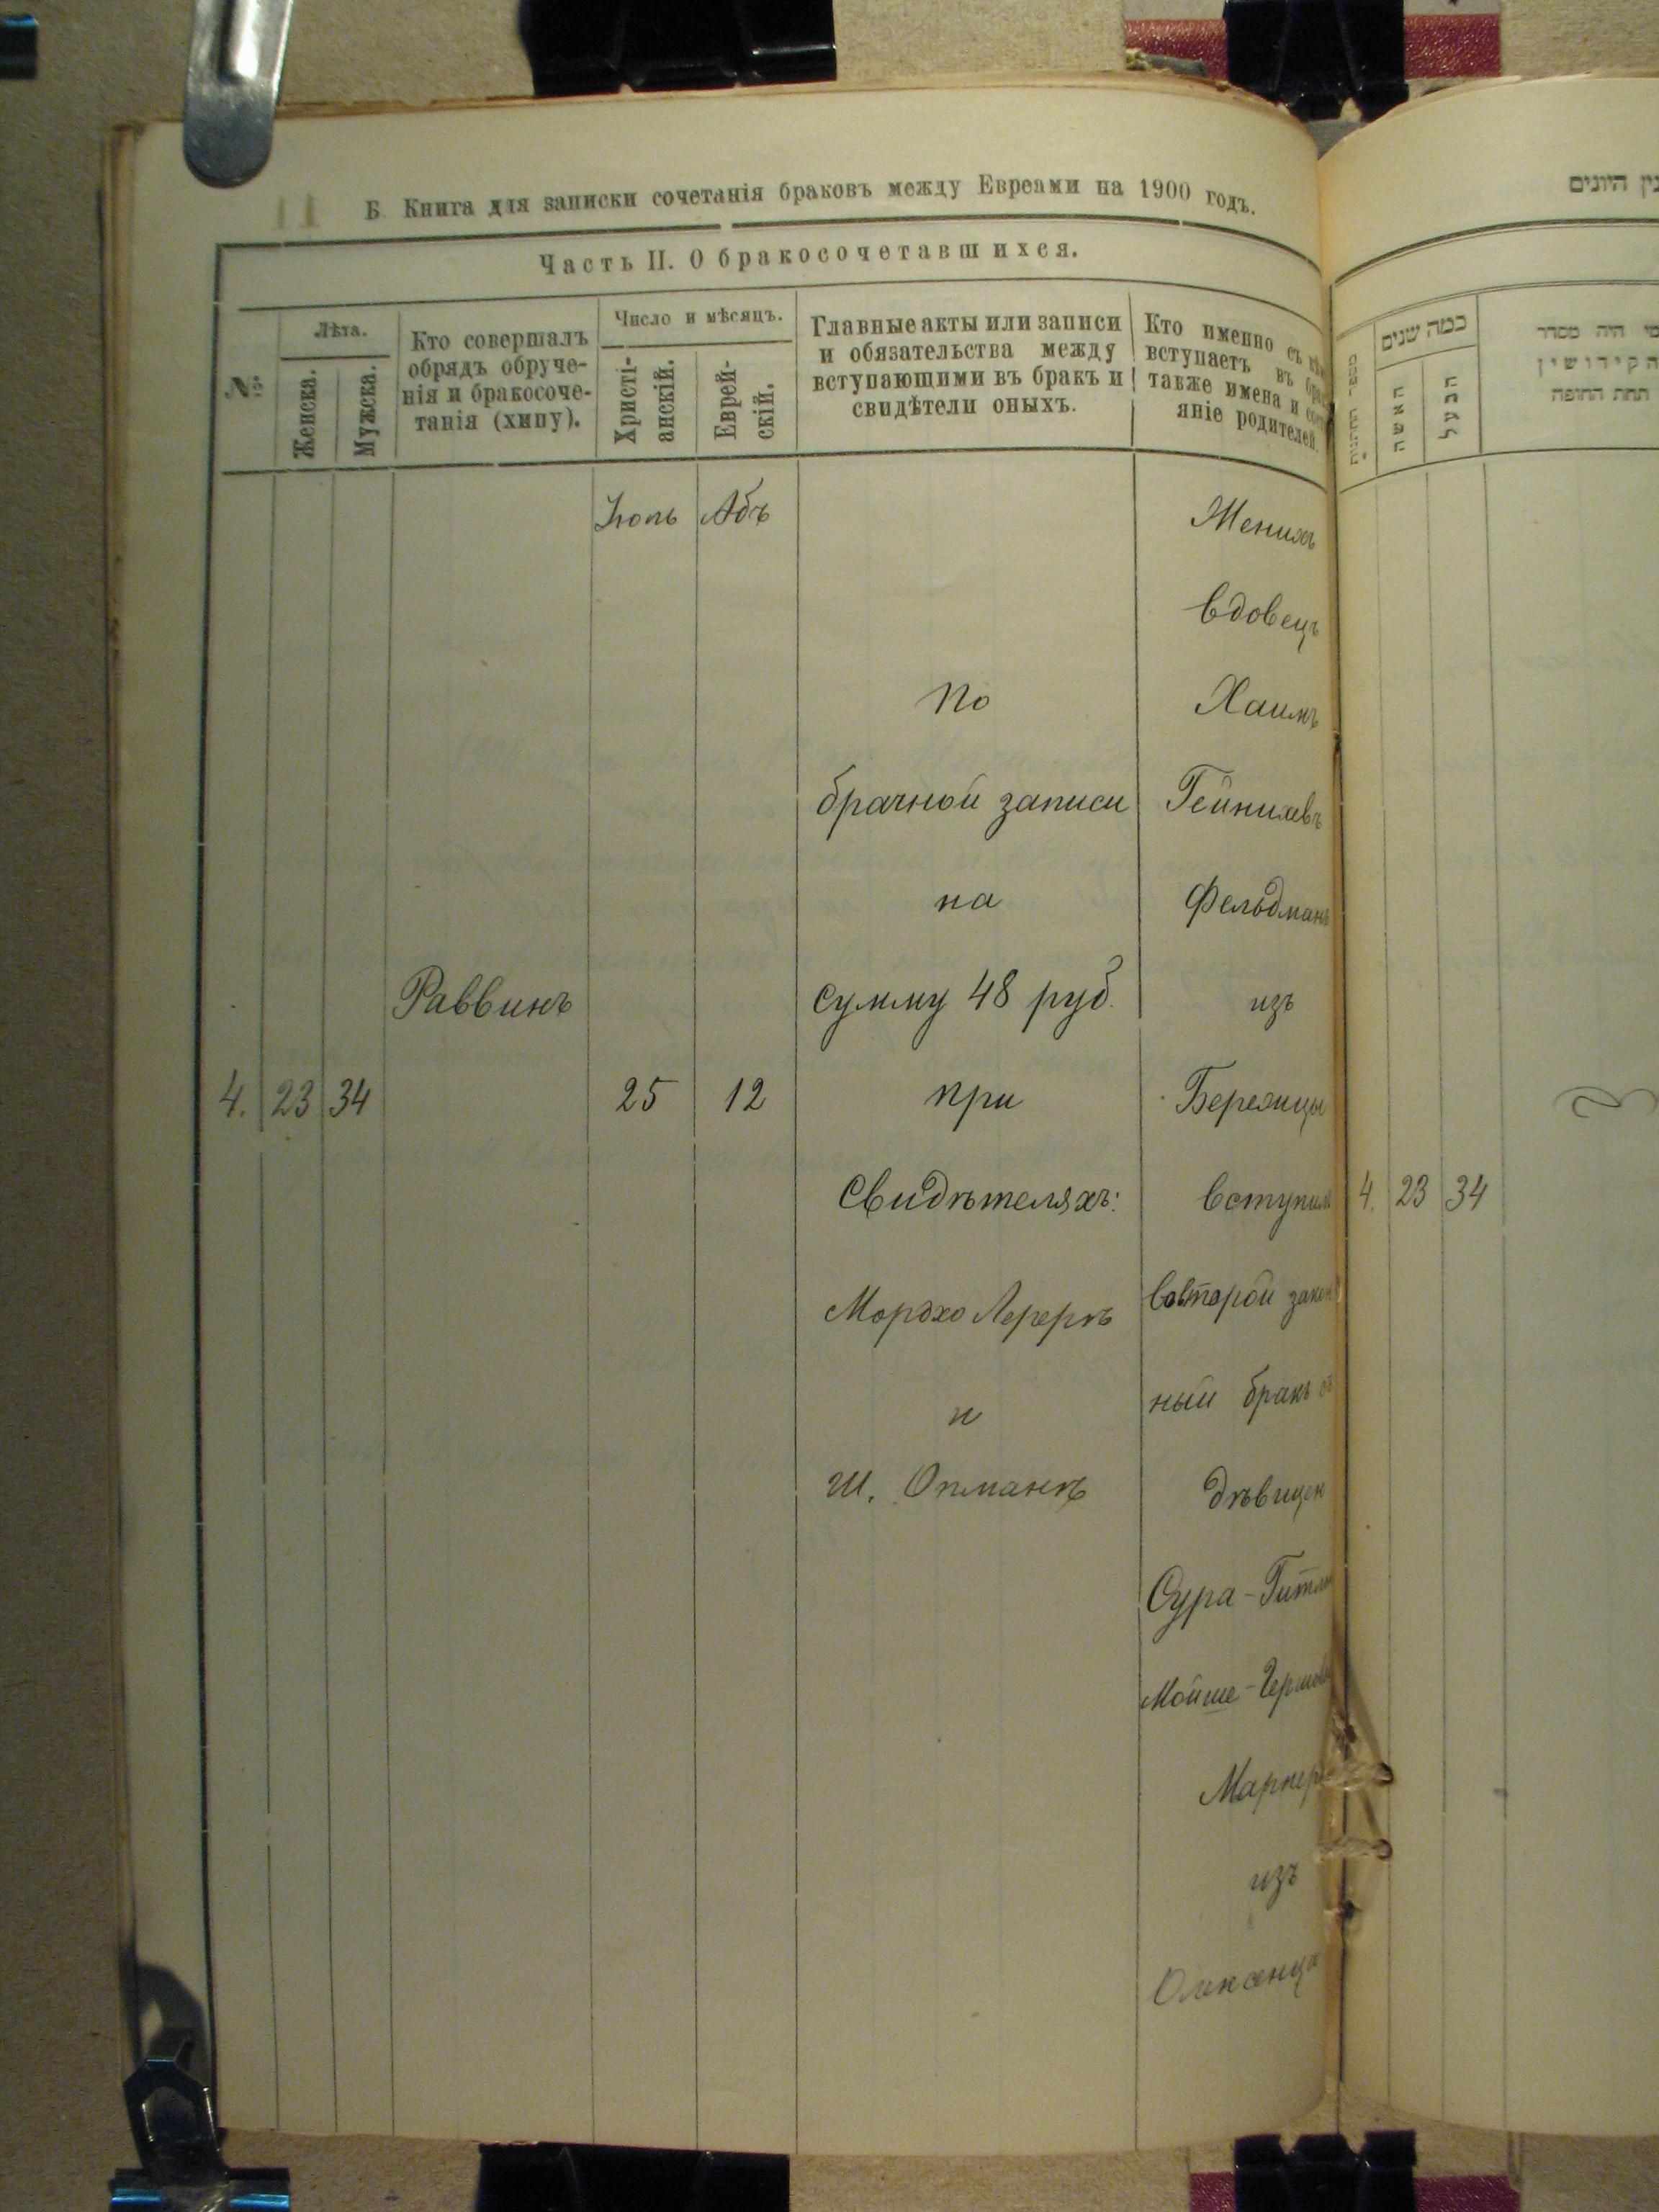 11
Б. Книга для записки сочетанія браковъ между Евреами на 1900 годъ.
Часть II. О бракосочетавшихся.
№
Лѣта.
Женска.
Мужска.
Кто совершалъ
обрядъ обруче-
нія и бракосоче-
танія (хипу).
Число и мѣсяцъ.
Христі-
анскій.
Еврей-
скій.
Главные акты или записи
и обязательства между
вступающими въ бракъ и
свидѣтели оныхъ.
Кто именно съ
вступаетъ въ
также имена и
яніе родителей.
Іюль
Абъ
4.
23
34
Раввинъ
25
12
По
брачной записи
на
сумму 48 руб.
при
Свидѣтеляхъ:
Мордхо Лереръ
и
Ш. Окманъ
Женихъ
вдовецъ
Хаимъ
Гейниховъ
Фельдманъ
изъ
Бережцы
вступилъ
вовторой закон
ный бракъ
дѣвицею
Сура-Гитлею
Мойше-Гершов
Маркер
изъ
Олексенца
ין היונים
כמה שנים
האשה
הבעל
מי היה מסדר
הקידושין
תחת החופה
4.
23
34